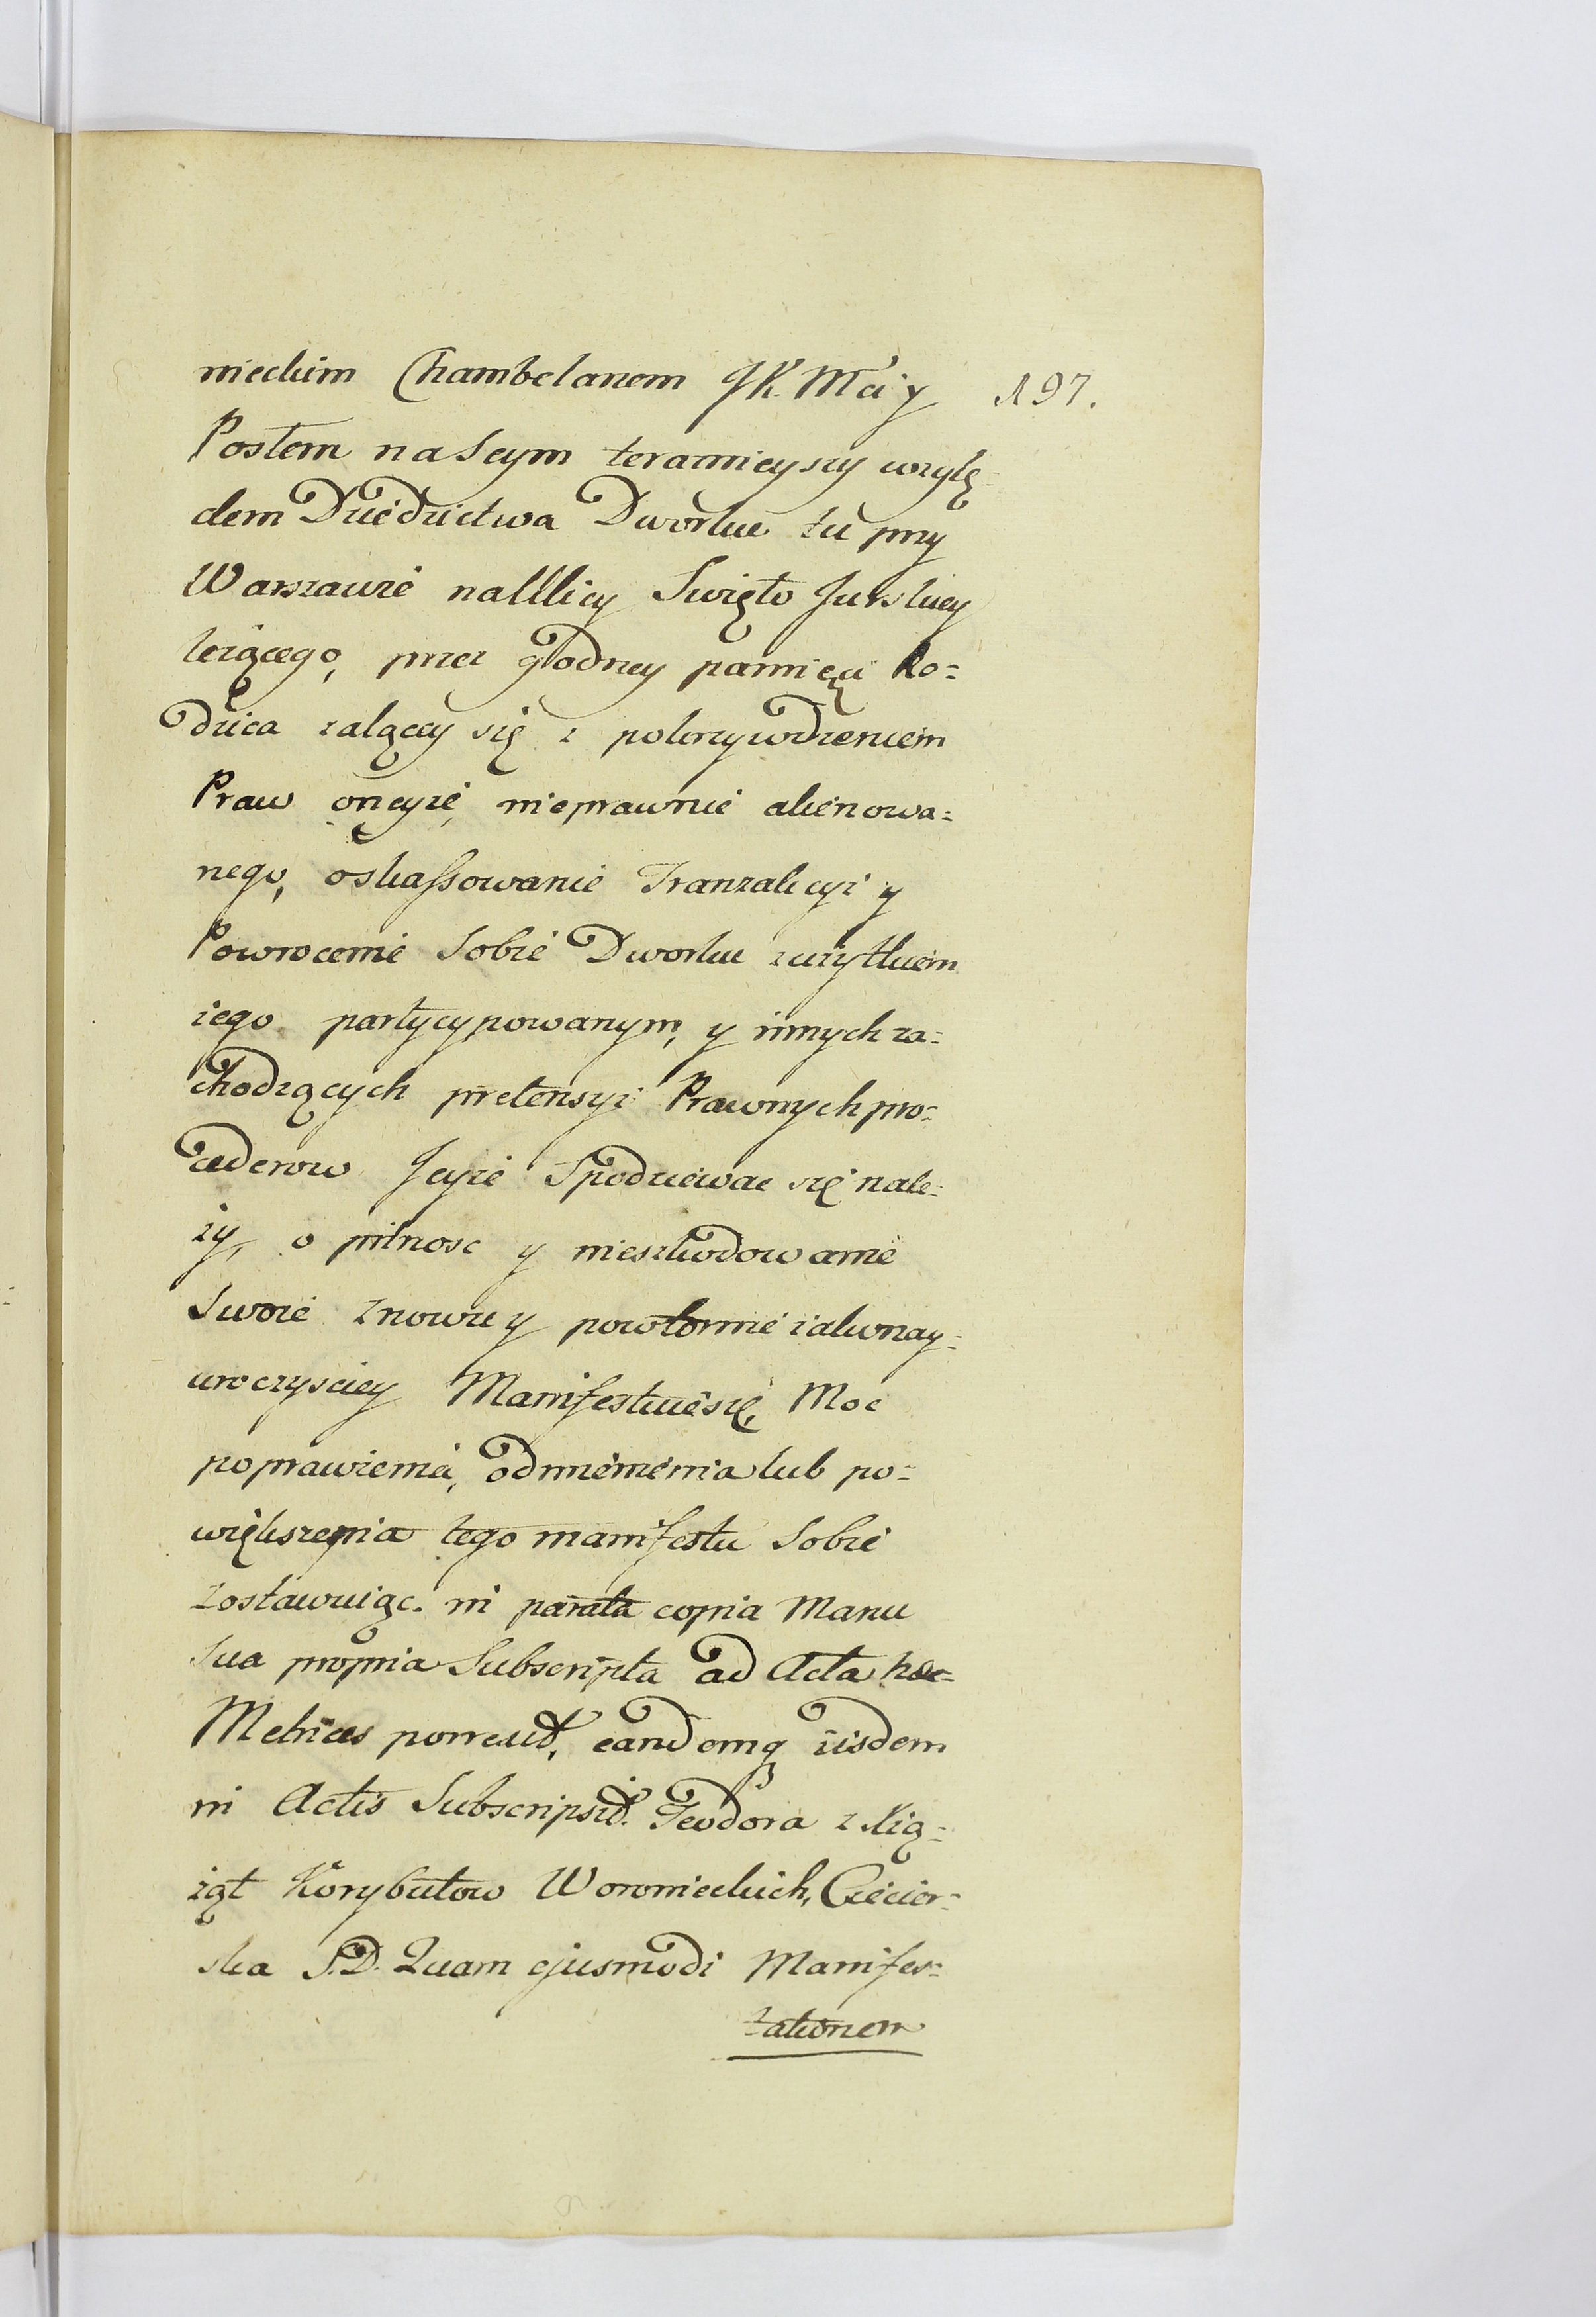 nieckim Chambelanem JK. Mći y
197.
Posłem na Seym teraznieyszy wzglę-
dem Dziedzictwa Dworku tu przy
Warszawie na Ulicy Swięto Jurskiey
leżącego, przez godney pamięci Ro=
dzica zalącey się z pokrzywdzeniem
Praw oneyże, nieprawnie alienowa=
nego, o skassowanie Tranzakcyi y
Powrocenie Sobie Dworku z użytkiem
iego partycypowanym, y innych za=
chodzących pretensyi Prawnych pro=
cederow Jeyże Spodziewac się nale=
ży, o pilnosc y nieszkodowanie
Swoie znowu y powtornie iak nay=
uroczysciey Manifestuie się, Moc
poprawienia, odmienienia lub po=
większenia tego manifestu Sobie
zostawuiąc. ni parata copia Manu
Sua propria Subscripta ad Acta hæc
Metrices porrexit, eandemq iisdem
in Actis Subscripsit. Teodora z Xią=
żąt Korybutow Woronieckich, Ciecier=
ska S.D. Quam ejusmodi Manifes=
tationem